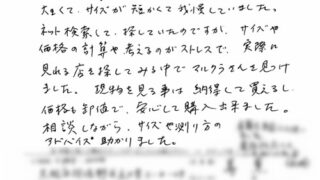 大きくて、サイズが短かくて我慢していました。
ネット検索して、探していたのですが、サイズや
価格の計算や考えるのがストレスで、実際に
見れる店を探してみる中でマルクラさんを見つけ
ました。現物を見る事は納得して買えるし、
価格も卸値で、安心して購入出来ました。
相談しながら、サイズや測り方の
アドバイス助かりました。